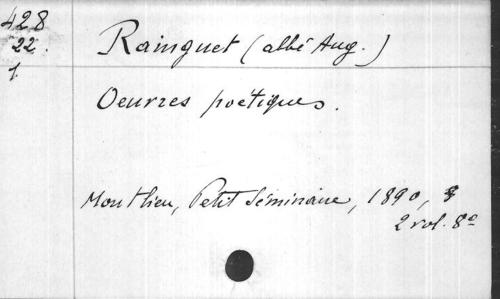 428
22.
1
Rainguet (abbé Aug.)
Oeuvres poétiques.
Montlieu, Petit Séminaire, 1890,
2 vol. 8º